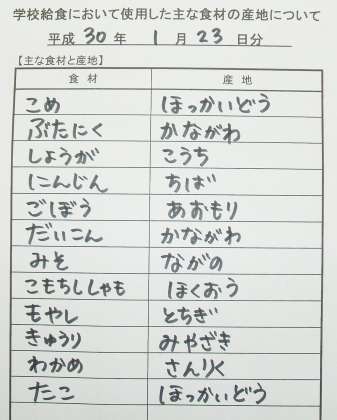 学校給食において使用した主な食材の産地について
平成 30 年 1 月 23 日分
【主な食材と産地】
食材 産地
こめ ほっかいどう
ぶたにく かながわ
しょうが こうち
にんじん ちば
ごぼう あおもり
だいこん かながわ
みそ ながの
こもちししゃも ほくおう
もやし とちぎ
きゅうり みやざき
わかめ さんりく
たこ ほっかいどう